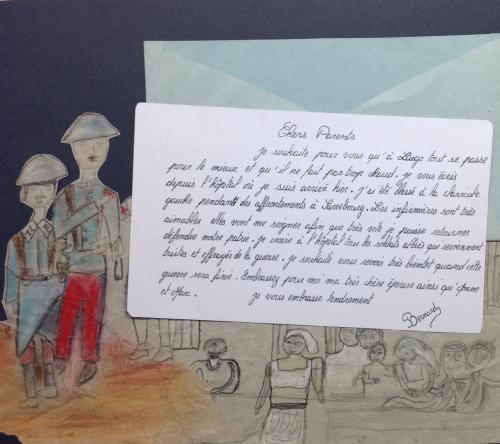 Chers Parents
Je souhaite pour vous qu'à Lugo tout se passe
pour le mieux et qu'il ne fait pas trop chaud. je vous écris
depuis l'hôpital où je suis arrivé hier. j'ai été blessé à la clavicule
gauche pendant des affrontements à Sarrebourg. Les infirmières sont très
aimables elles vont me soigner afin que très vite je puisse retourner
défendre notre patrie. Je croise à l'hôpital tous les soldats alliés qui reviennent
tristes et effrayés de la guerre. je souhaite vous revoir très bientôt quand cette
guerre sera finie. Embrassez pour moi ma très chère épouse ainsi qu'Anne
et Marc. je vous embrasse tendrement